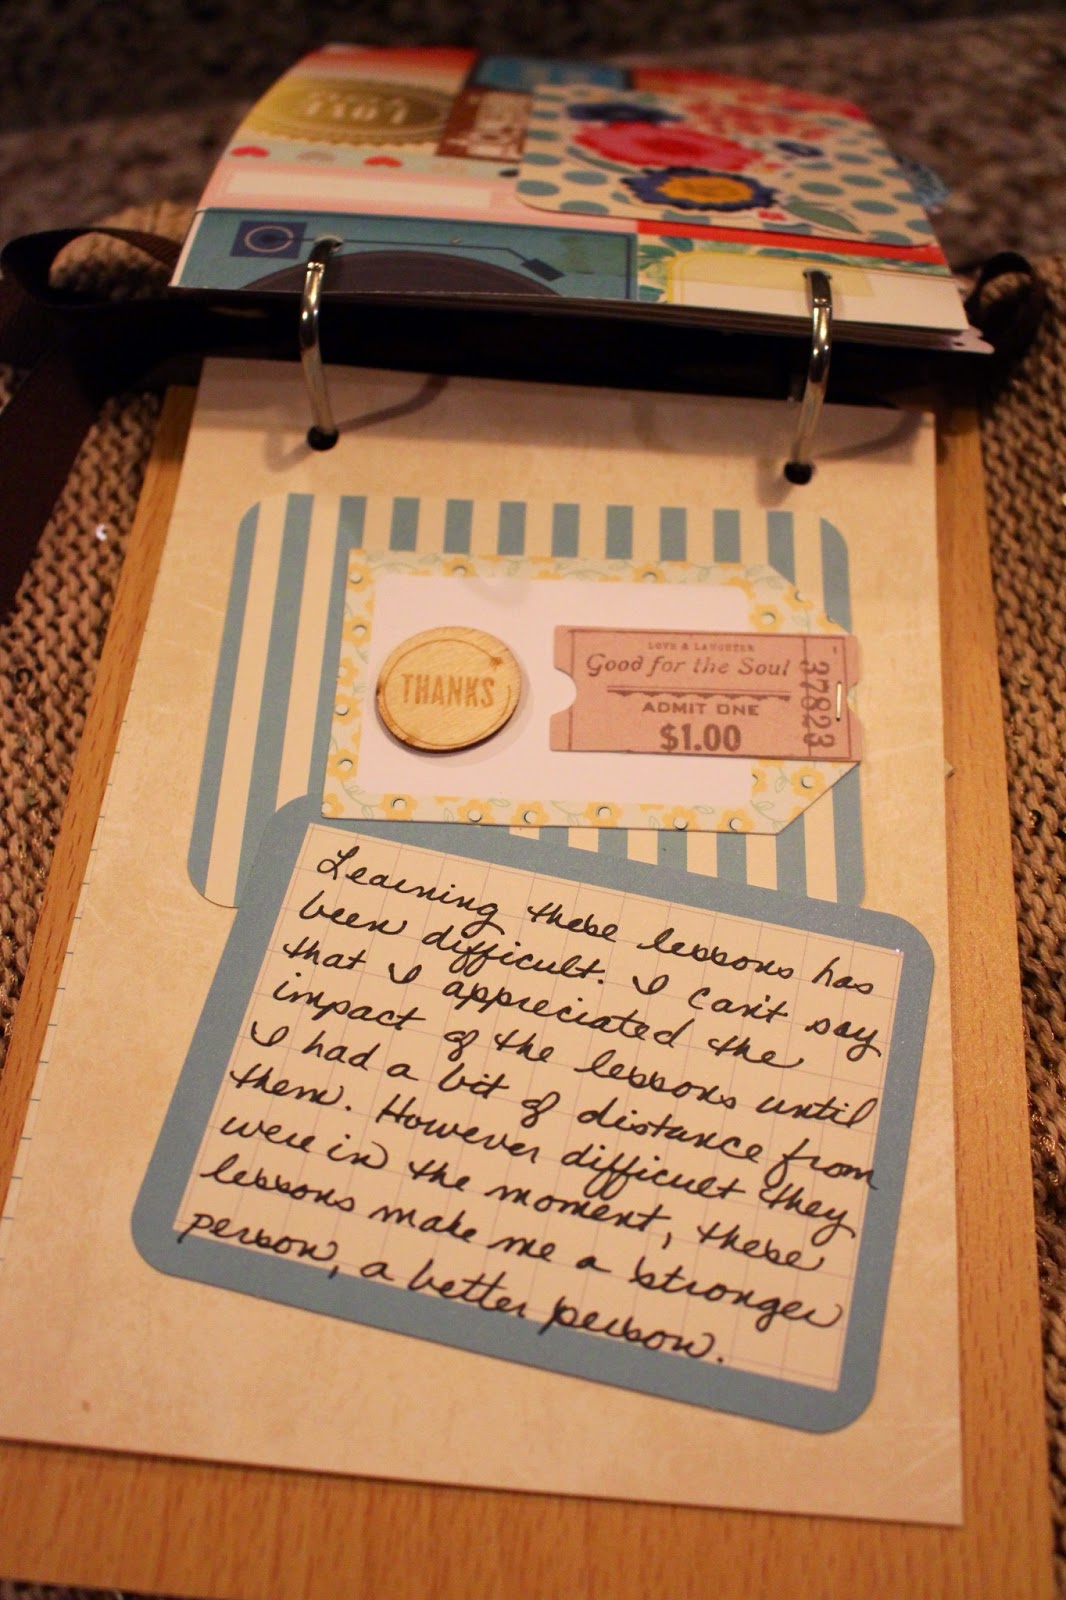 THANKS
LOVE & LAUGHTER
Good for the Soul
ADMIT ONE
$1.00
37823
Learning these lessons has
been difficult. I can't say
that I appreciated the
impact of the lessons until
I had a bit of distance from
them. However difficult they
were in the moment, these
lessons make me a stronger
person, a better person.